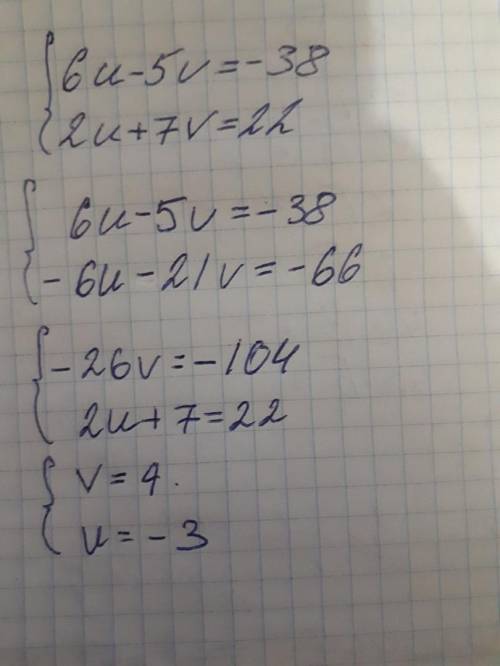 6u-5v=-38
2u+7v=22
6u-5v=-38
-6u-21v=-66
-26v=-104
2u+7=22
v=4.
u=-3